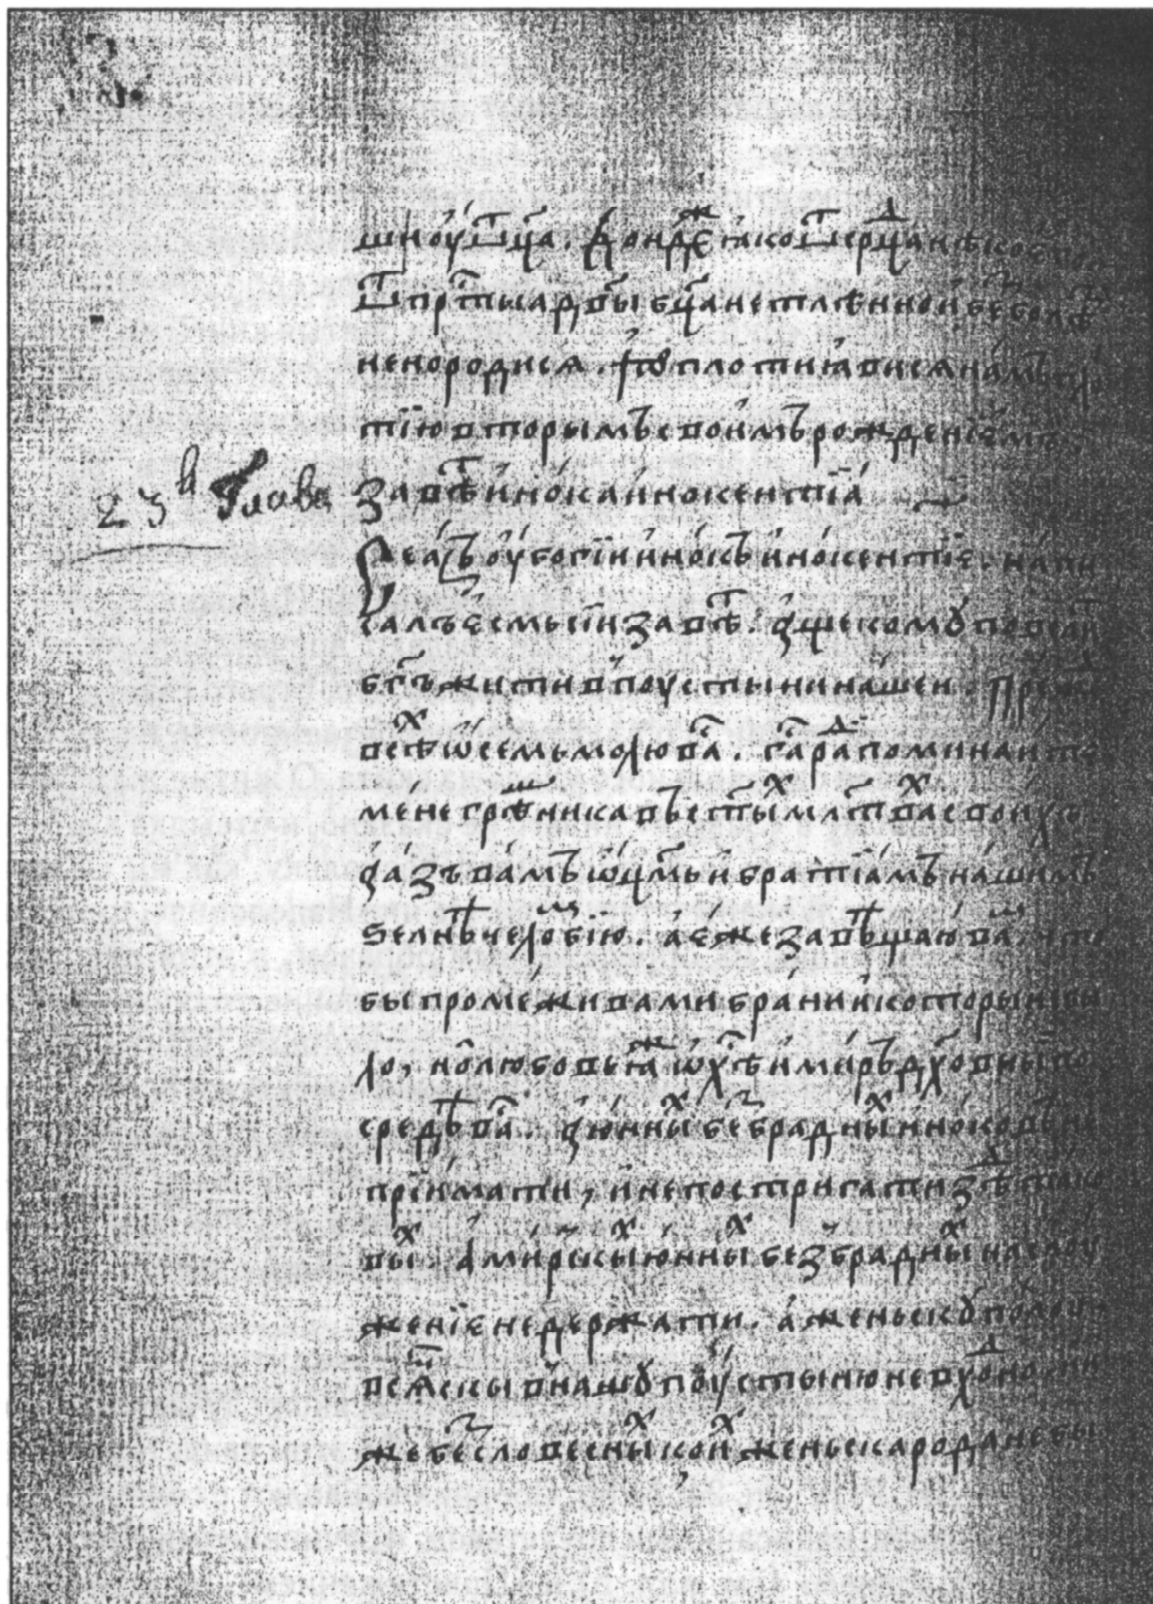 шноу ѿц҃а. Дондеⷤ ꙗко ѿ серⷣца нѣкоего
ѿ прⷭ҇тыа дв҃ы бц҃а нетлѣнно и беⷥболѣ
нено родися. и то плотиꙗвися на́мъ пло
тїю вторымъ свои́мъ рожденїемъ
23 Глава
Завѣⷮ и́нока и́нокентїа
Се а́зъ оу҆богїи и́нокъ и́нокентїе. напи
салъ е҆смь сїи завѣⷮ. а҆ще комꙋ повелиⷮ
бг҃ъ жити в поустыни нашеи. Преже
всѣⷯ ѡ҆ семь молю ваⷭ. гⷭ҇а раⷣ поминаите
ме́не грѣⷲника въ ст҃ыⷯ млт҃ваⷯ своихъ
а҆ азъ ва́мъ ѡ҆ц҃мъ и братїа́мъ на́шимъ
ѕелнѣ челоⷨ бїю. а҆ се́же завѣщаю ваⷨ. что
бы проме́жи вами бра́ни нїкоторыи бы
ло, но любовь ꙗⷤ ѡ҆ хⷭ҇ѣ и ми́ръ дх҃овныи по
средѣ ваⷭ. а҆ ю҆нныⷯ беⷥбрадныⷯ и҆ноковъ не
прїима́ти, и непострига́ти зⷣѣ тако
выⷯ. а҆ ми́рьскыⷯ ю҆нныⷯ безбрадныⷯ на слоу
женїе не держати. а҆ женьскꙋ полоу
всѧ́скы в нашꙋ поу́стыню не вхоⷣно
же беⷥсловесныⷯ коиⷯ женьска рода не бы